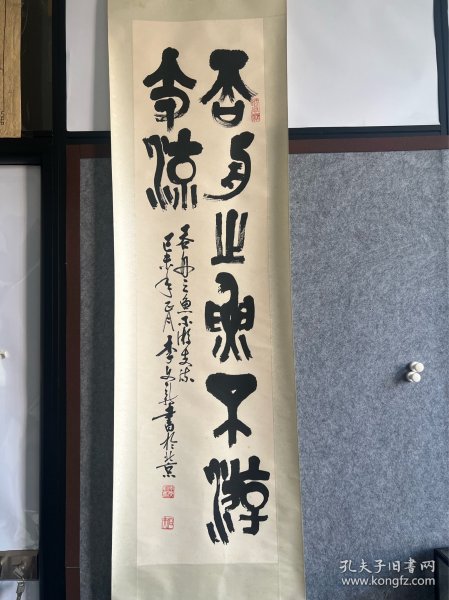 吞舟之魚不游
支流
吞舟之魚不游支流
己未年正月 李文書於北京
孔夫子旧书网
www.kongfz.com